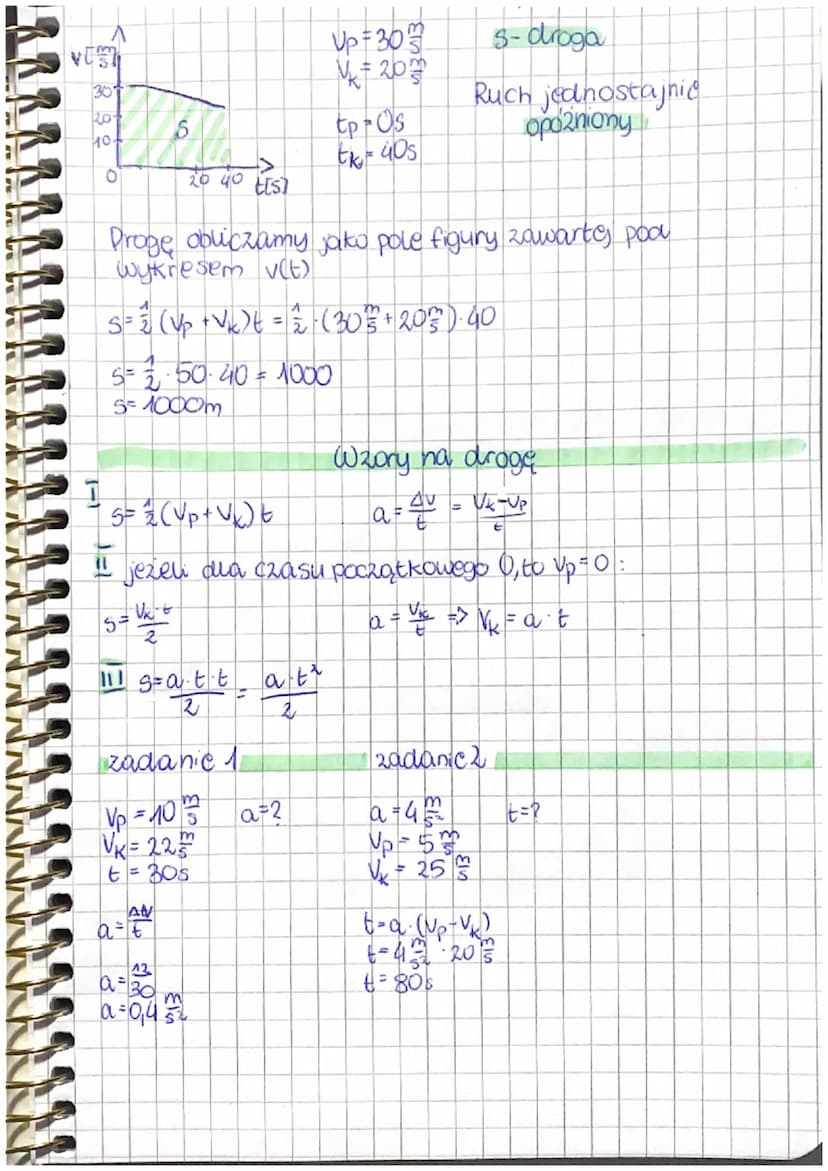 v[m/s]
30
20
10
S
0
20 40 t[s]
Vp = 30 m/s
Vk = 20 m/s
tp = 0s
tk = 40s
s - droga
Ruch jednostajnie
opóźniony
Drogę obliczamy jako pole figury zawartej pod
wykresem v(t)
s = 1/2 (Vp + Vk) t = 1/2 · (30 m/s + 20 m/s) · 40
s = 1/2 · 50 · 40 = 1000
s = 1000m
Wzory na drogę
I
s = 1/2 (Vp + Vk) t a = Δv/t = Vk-Vp/t
II jeżeli dla czasu początkowego 0, to Vp = 0 :
s = Vk·t/2 a = Vk/t => Vk = a · t
III s = a·t·t/2 = a·t²/2
zadanie 1 zadanie 2
Vp = 10 m/s a = ?
Vk = 22 m/s
t = 30s
a = ΔV/t
a = 12/30
a = 0,4 m/s²
a = 4 m/s² t = ?
Vp = 5 m/s
Vk = 25 m/s
t = a · (Vp - Vk)
t = 4 m/s² · 20 m/s
t = 80s